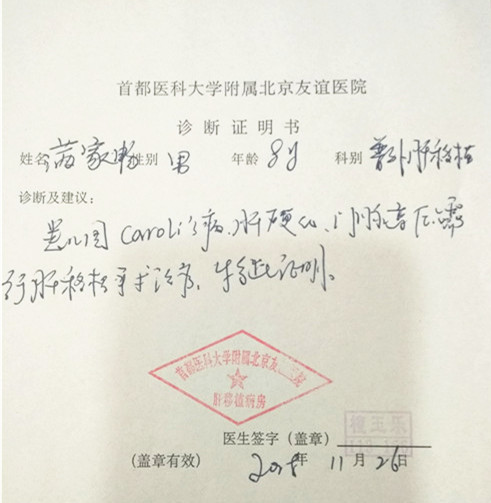 首都医科大学附属北京友谊医院
诊断证明书
姓名 家 性别 男 年龄 8y 科别 普外肝移植
诊断及建议:
患儿因Caroli's病、肝硬化、门脉高压需
行肝移植手术治疗,特此证明。
首都医科大学附属北京友谊医院
肝移植病房
医生签字(盖章)
(盖章有效) 年 11 月 26 日